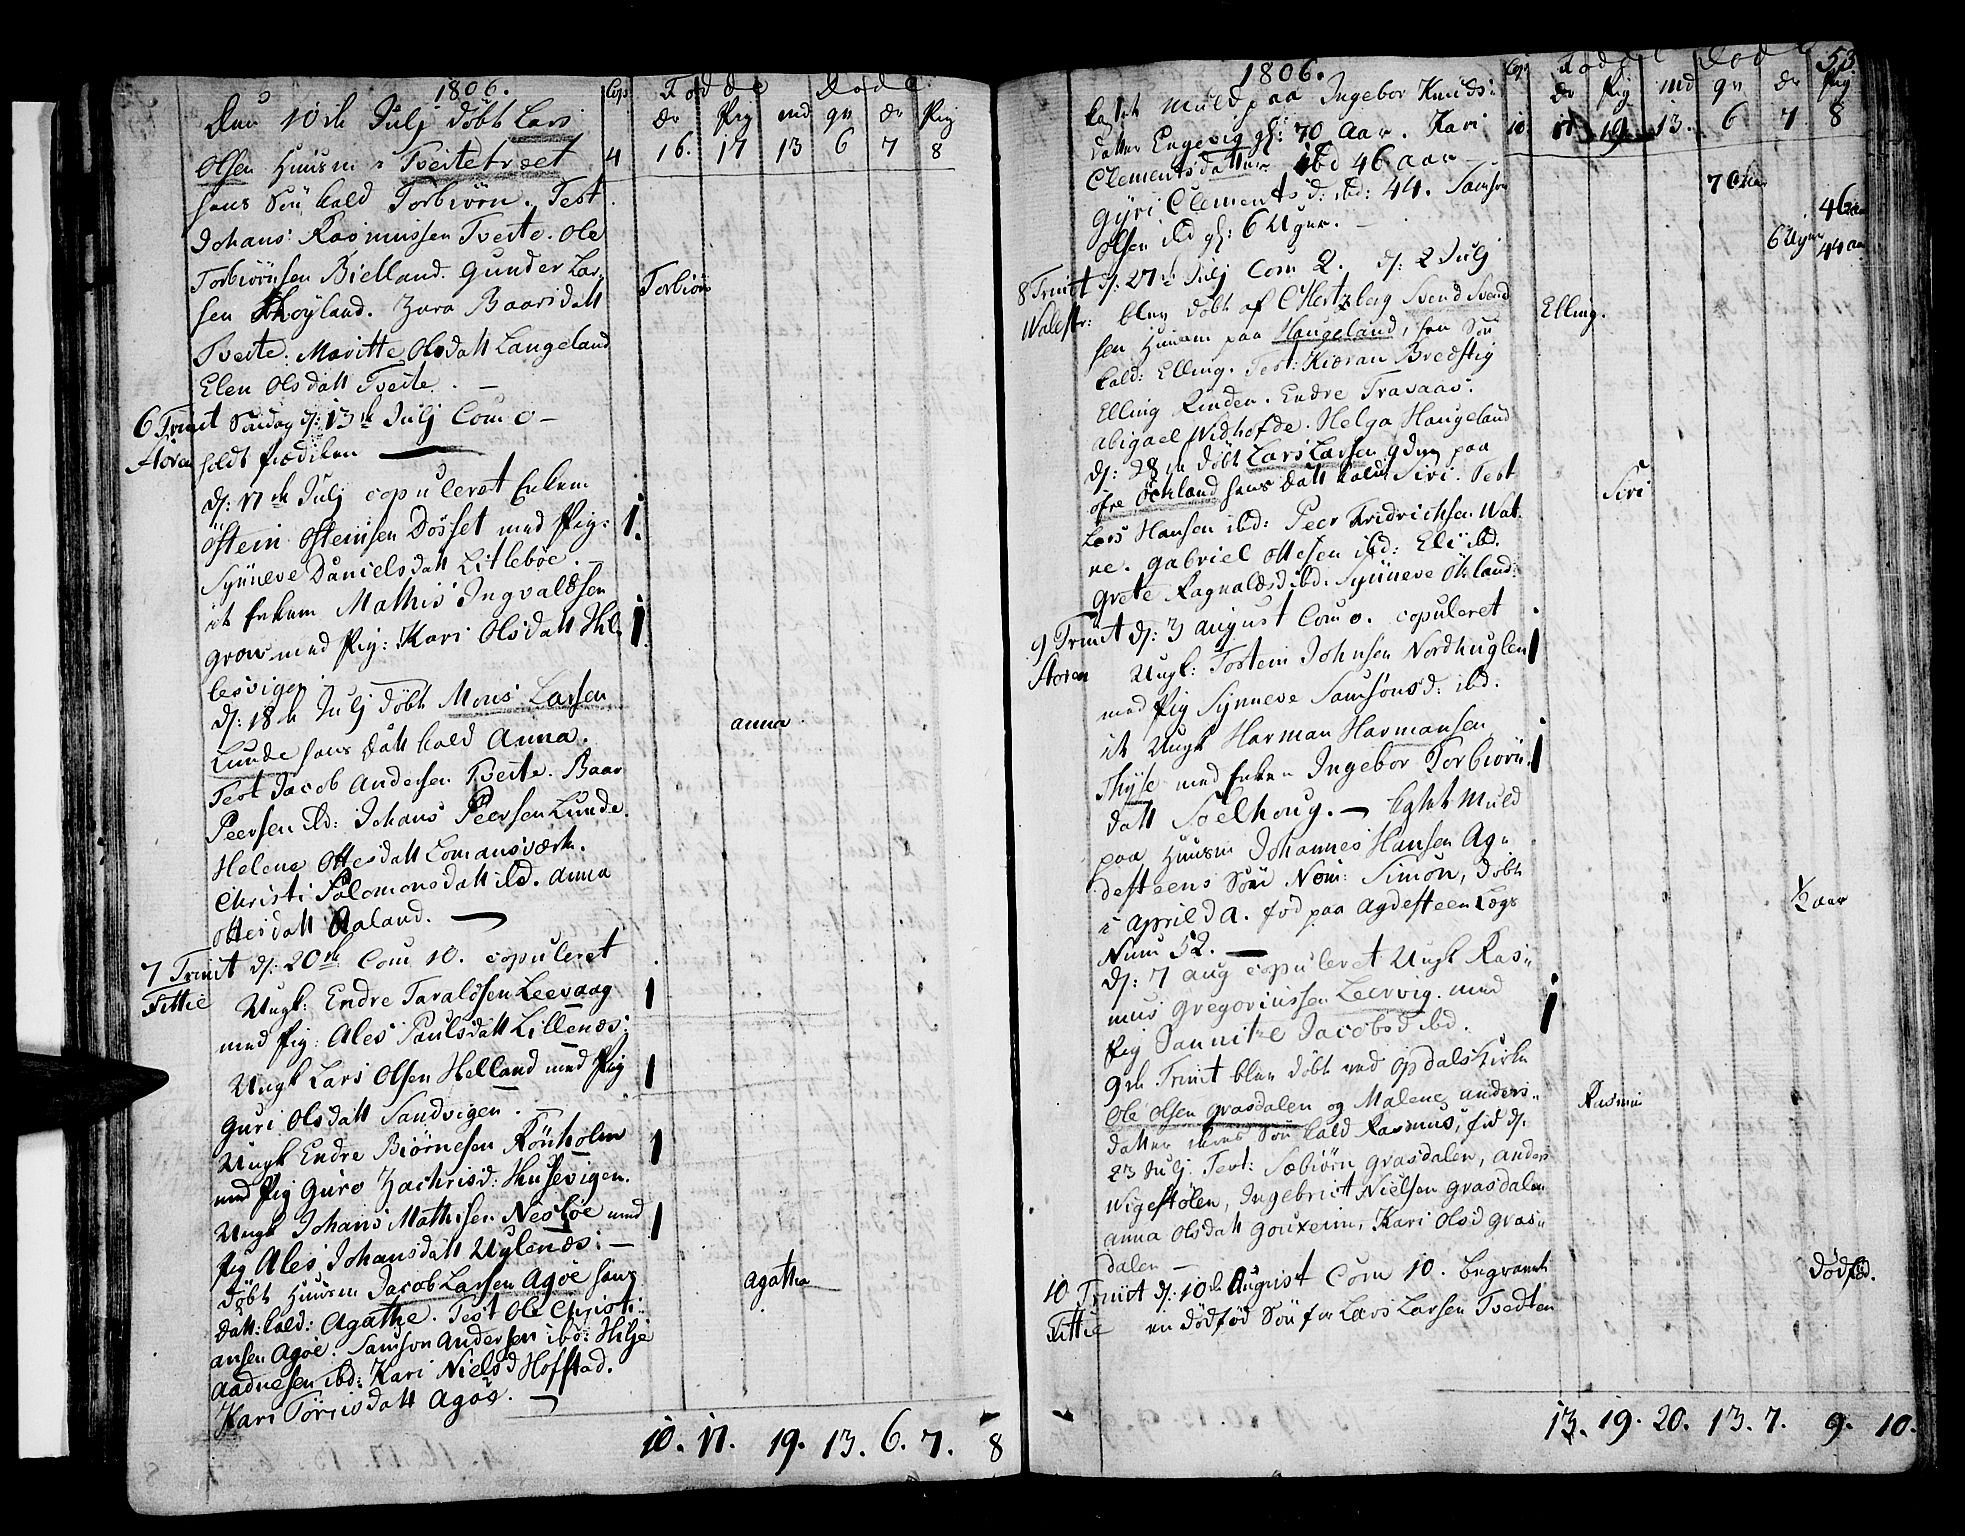 1806.
Cop. Fødde Døde
Dr Pig md qv Dr Pig
16. 17 13 6 7 8
Den 10de Julj døbt Lars
Olsen Huusm: Tveitetræet 4
hans Sön kald Torbiörn. Test.
Johans Rasmussen Tveite. Ole
Torbiörnsen Bielland. Gunder Lar-
Torbiörn
sen Skoyland. Zara Baarsdatt
Tveite. Maritte Olsdatt Langeland
Elen Olsdatt Tveite. —
6 Trinit Søndag d: 13de Julj Com 0 —
Støren holdt Prædiken —
d: 17de Julj copuleret Enkem
Östein Osteinsen Dosset med Pig: 1.
Synneve Danielsdatt Litleböe. —
it Enkem Mathis Ingvaldsen
Grow med Pig: Kari Olsdatt Hil- 1
lesvigen
d: 18de Julj döbt Mons Larsen
Lunde hans datt kald Anna.
anna
Test Jacob Andersen Tveite. Baar
Peersen ibd: Johans Peersen Lunde.
Helena Ottesdatt Lomansværk.
Christi Salomonsdatt ibd. anna
Ottesdatt Aaland. —
7 Trinit d: 20de Com 10. copuleret
Fittie Ungk: Endre Taraldsen Leevaag 1
med Pig: Ales Paulsdatt Lillenæs:
Ungk Lars Olsen Helland med Pig 1
Guri Olsdatt Sandvigen. —
Ungk Endre Biörnesen Rönholm 1
med Pig Guro Zachrisd: Husevigen.
Ungk Johans Mathisen Nesböe med 1
Pig Ales Johansdatt Uglenæs: —
Döbt Huusm Jacob Larsen Agöe hans
agatha
datt: kald: Agathe. Test Ole Christi-
ansen Agöe. Samson Andersen ibd: Hilje
Aadnesen ibd: Kari Nielsd Hoffstad.
Kari Törrisdatt Agöe. —
10. 17. 19. 13. 6. 7. 8
1806. 53
Cop: Fødde Døde
Dr Pig md qv Dr Pig
10. 17 19. 13. 6 7 8
kastet Muld paa Ingebor Knuds:
datter Engevig gl: 70 Aar. Kari
Clementsdatter ibd 46 aar
70 aar
Gÿri Clements d: ibd: 44. Samson
46 aar
Olsen ibd gl: 6 Uger. —
6 Uger 44 aar
8 Trinit d: 27de Julj Com 2. d: 2 Julj
Walestr: blev döbt af C Hertzberg Svend Svend
Elling.
sen Huusm paa Haugeland, hans Sön
kald: Elling. Test: Kioran Bredstig
Elling Rinden. Endre Travaas:
Abigael Widhofde. Helga Haugeland
d: 28de döbt Lars Larsen gdm paa
öfre Öchland hans datt kald Siri. Test
Siri
Lars Hansen ibd: Peer Fridrichsen Wat-
ne. Gabriel Ottesen ibd: Eli ibd.
Grete Ragnaldsd ibd. Synneve Ökland.
9 Trinit d: 3 august Com 0. copuleret
Støren Ungk: Tostein Johnsen Nordhuglen 1
med Pig Synneve Samsonsd: ibd:
it Ungk Harman Harmansen
Thÿse med Enken Ingebor Torbiörn- 1
datt Soelhoug. — kastet Muld
paa Huusm Johannes Hansen Ag-
desteens Sön Nom: Simon, döbt
i april d A. föd paa Agdesteen Lægs
½ aar
Num 52. —
d: 7 aug copuleret Ungk Ras-
mus Gregoriussen Leervig. med 1
Pig Jannike Jacobsd ibd.
9de Trinit blev döbt ved Opdals Kirke
Ole Olsen Grasdalen og Malene anders-
Rasmus
datter deres Sön kald Rasmus, föd d:
23 Julj. Test: Sæbiörn Grasdalen, anders
Wigestölen, Ingebrict Nielsen Grasdalen
anna Olsdatt Gouxeim, Kari Olsd Gras-
dalen —
10 Trinit d: 10de August Com 10. begravet
Dødfød.
Fittie en Dødfød Sön for Lars Larsen Tvedten
13. 19. 20. 13. 7. 9. 10.